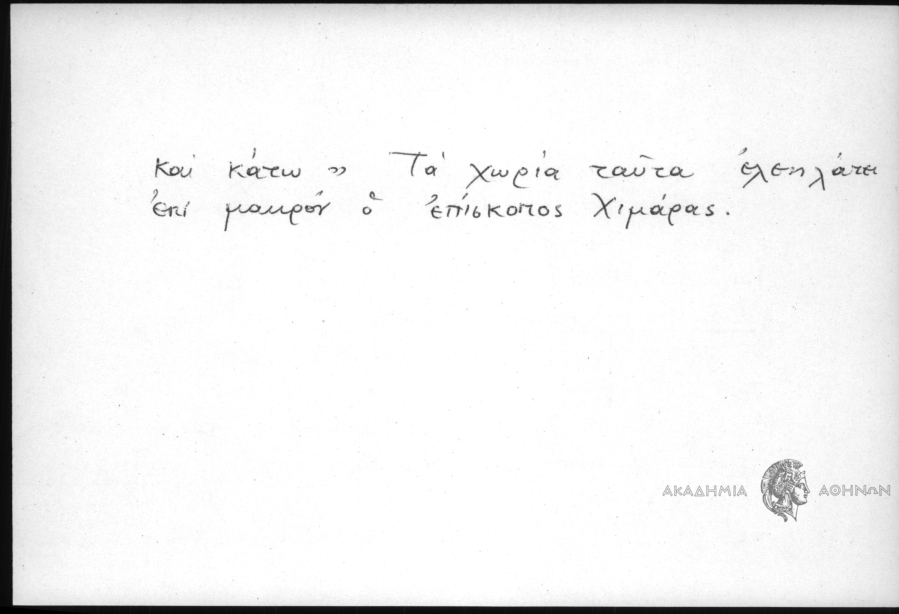 καί κάτω " Τά χωρία ταῦτα ἐλεηλάτει
ἐπί μακρόν ὁ ἐπίσκοπος Χιμάρας.
ΑΚΑΔΗΜΙΑ ΑΘΗΝΩΝ